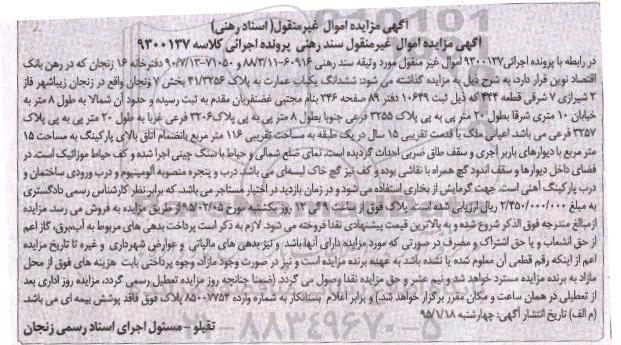 آگهی مزایده اموال غیرمنقول( اسناد رهنی)
آگهی مزایده اموال غیرمنقول سند رهنی پرونده اجرائی کلاسه ۹۳۰۰۱۳۷
در رابطه با پرونده اجرائی ۹۳۰۰۱۳۷ اموال غیر منقول مورد وثیقه سند رهنی ۶۰۹۱۶-۸۸/۳/۱۱ و ۷۱۰۵۰-۹۰/۷/۱۳ دفترخانه ۱۶ زنجان که در رهن بانک
اقتصاد نوین قرار دارد، به شرح ذیل به مزایده گذاشته می شود: ششدانگ یکباب عمارت به پلاک ۴۱/۳۲۵۶ بخش ۷ زنجان واقع در زنجان زیباشهر فاز
۲ شیرازی ۷ شرقی قطعه ۴۴۴ که ذیل ثبت ۱۰۶۴۹ دفتر ۸۹ صفحه ۳۴۶ بنام مجتبی غضنفریان مقدم به ثبت رسیده و حدود آن شمالا به طول ۸ متر به
خیابان ۱۰ متری شرقا بطول ۲۰ متر پی به پی پلاک ۳۲۵۵ فرعی جنوبا بطول ۸ متر پی به پی پلاک ۳۲۰۶ فرعی غربا به طول ۲۰ متر پی به پی پلاک
۳۲۵۷ فرعی می باشد. اعیانی ملک با قدمت تقریبی ۱۵ سال در یک طبقه به مساحت تقریبی ۱۱۶ متر مربع بانضمام اتاق بالای پارکینگ به مساحت ۱۵
متر مربع با دیوارهای باربر آجری و سقف طاق ضربی احداث گردیده است. نمای ضلع شمالی و حیاط با سنگ چینی اجرا شده و کف حیاط موزائیک است. در
فضای داخل دیوارها و سقف اندود گچ همراه با نقاشی بوده و کف نیز گچ خاک لیسه‌ای می باشد. درب و پنجره منصوبه آلومینیوم و درب ورودی ساختمان و
درب پارکینگ آهنی است. جهت گرمایش از بخاری استفاده می شود و در زمان بازدید در اختیار مستاجر می باشد. که برابر نظر کارشناس رسمی دادگستری
به مبلغ ۲/۴۵۰/۰۰۰/۰۰۰ ریال ارزیابی شده است. پلاک فوق از ساعت ۹ الی ۱۲ روز یکشنبه مورخ ۹۵/۰۲/۰۵ از طریق مزایده به فروش می رسد. مزایده
از مبالغ مندرجه فوق الذکر شروع شده و به بالاترین قیمت پیشنهادی نقدا فروخته می شود. لازم به ذکر است پرداخت بدهی های مربوط به آب،برق، گاز اعم
از حق انشعاب و یا حق اشتراک و مصرف در صورتی که مورد مزایده دارای آنها باشد و نیز بدهی های مالیاتی و عوارض شهرداری و غیره تا تاریخ مزایده
اعم از اینکه رقم قطعی آن معلوم شده یا نشده باشد به عهده برنده مزایده است و نیز در صورت وجود مازاد، وجوه پرداختی بابت هزینه های فوق از محل
مازاد به برنده مزایده مسترد خواهد شد و نیم عشر و حق مزایده نقدا وصول می گردد. (ضمنا چنانچه روز مزایده تعطیل رسمی گردد، مزایده روز اداری بعد
از تعطیلی در همان ساعت و مکان مقرر برگزار خواهد شد) و برابر اعلام بستانکار به شماره وارده ۸۵۰۰۷۷۵۴ پلاک فوق فاقد پوشش بیمه ای می باشد.
(م الف) تاریخ انتشار آگهی: چهارشنبه ۹۵/۱/۱۸
تقیلو - مسئول اجرای اسناد رسمی زنجان
۰۲۱-۸۸۳۴۹۶۷۰-۵